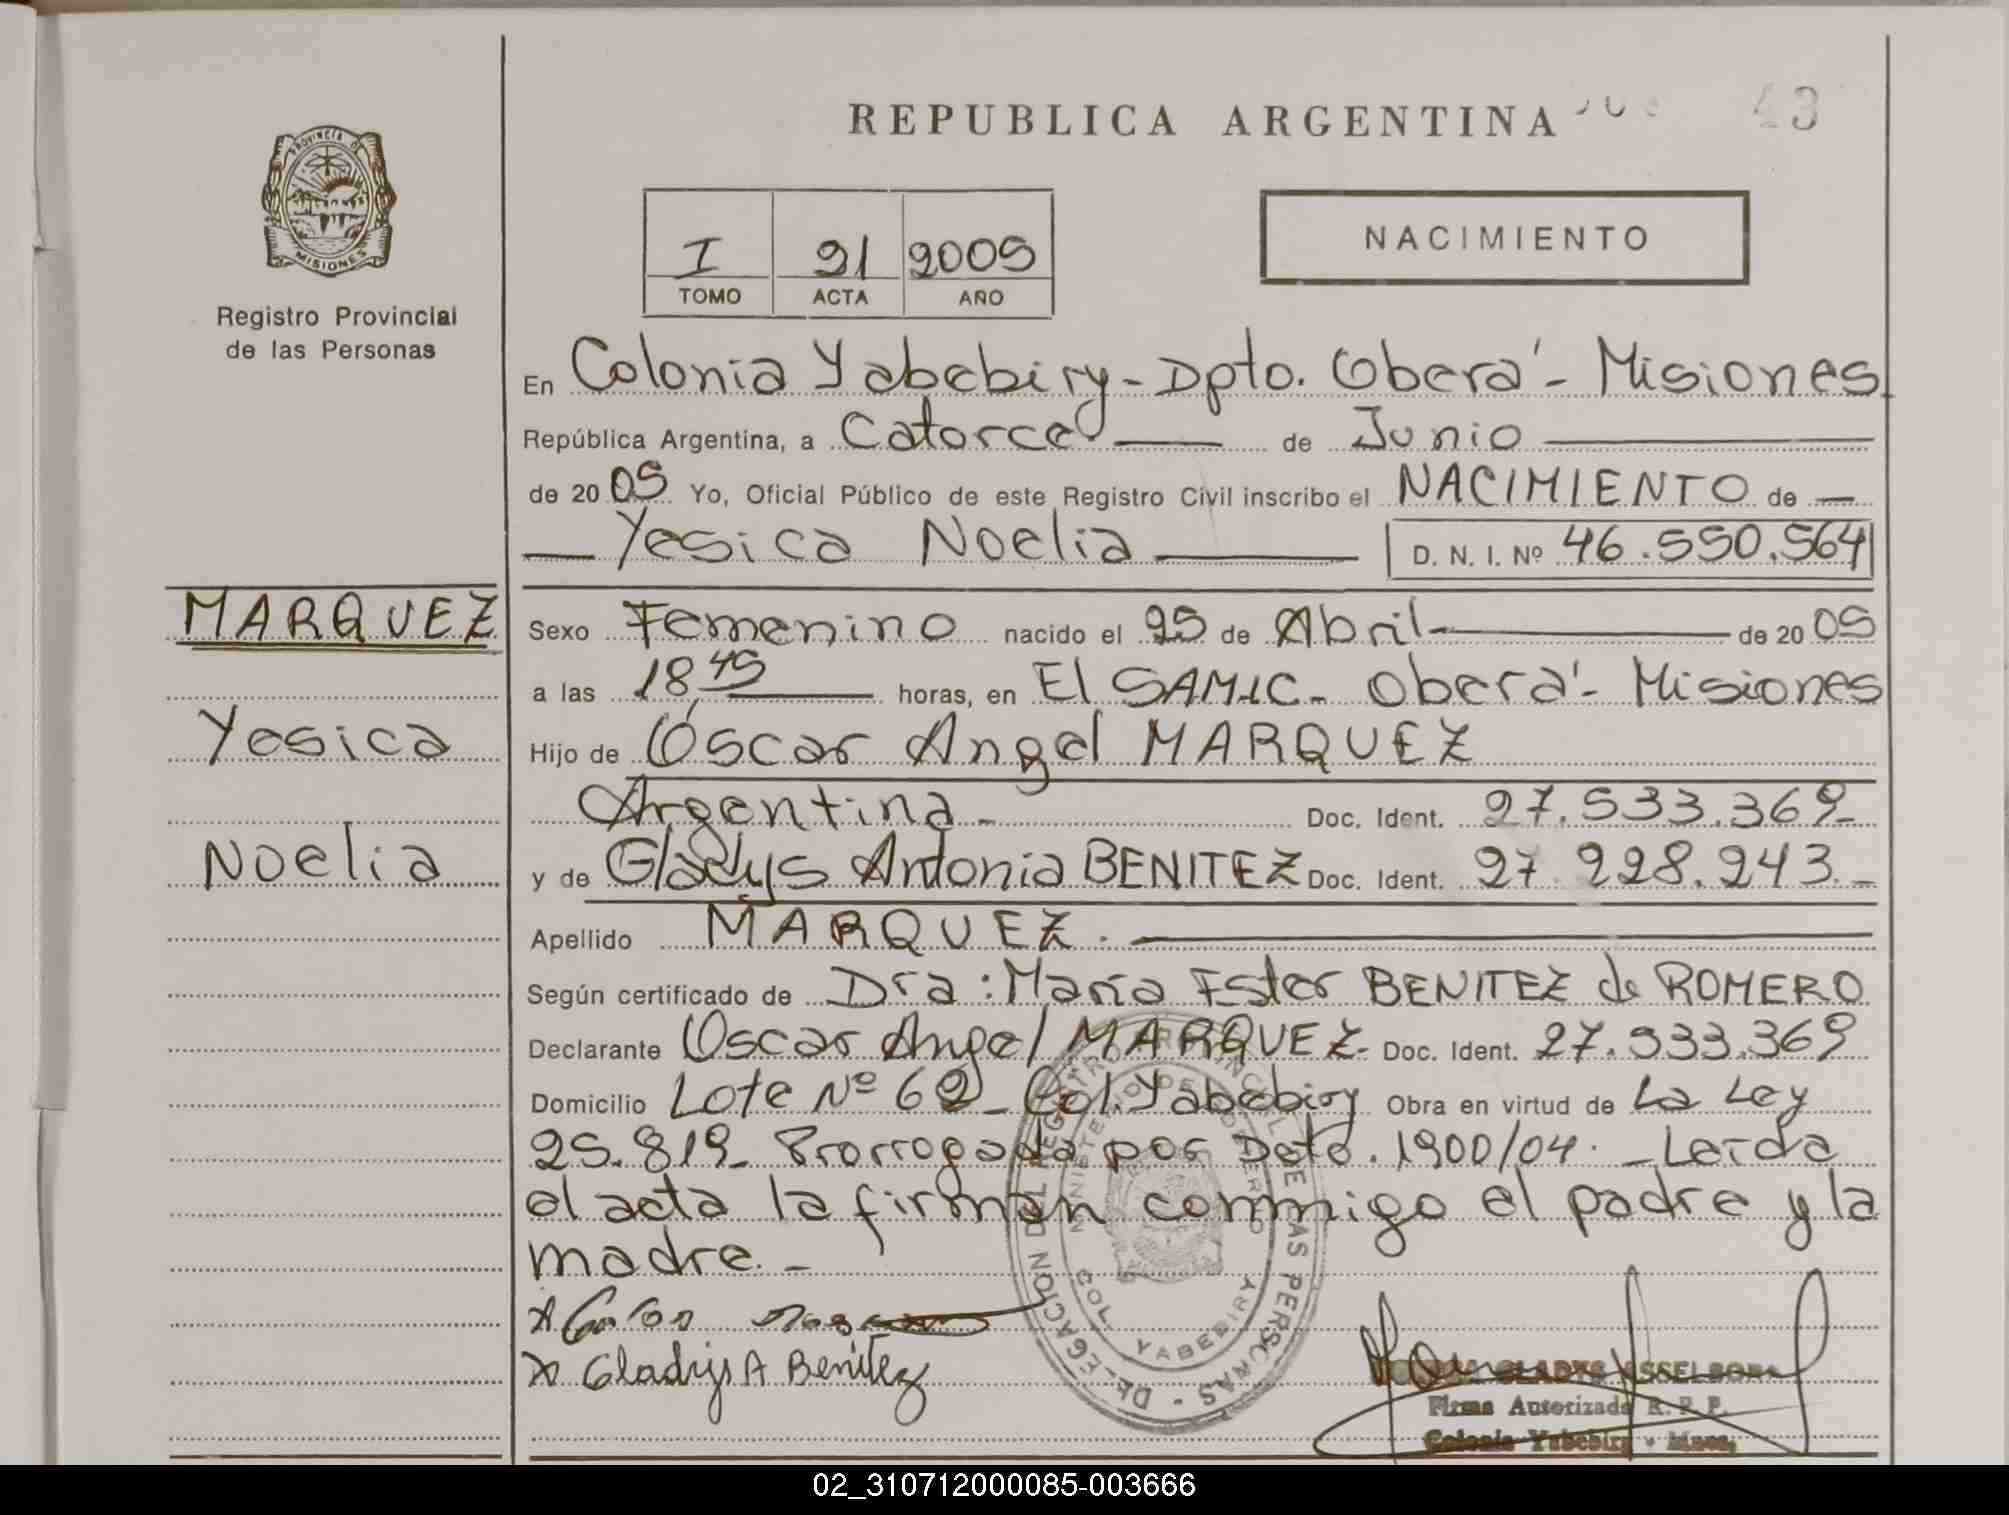 REPUBLICA ARGENTINA
43
PROVINCIA DE
MISIONES
Registro Provincial
de las Personas
I 21 2005
TOMO ACTA AÑO
NACIMIENTO
En Colonia Yabebiry - Dpto. Oberá - Misiones
República Argentina, a Catorce de Junio
de 2005 Yo, Oficial Público de este Registro Civil inscribo el NACIMIENTO de
Yesica Noelia D. N. I. Nº 46.550.564
MARQUEZ
Yesica
Noelia
Sexo Femenino nacido el 25 de Abril de 2005
a las 18 45 horas, en El SAMIC - Oberá - Misiones
Hijo de Oscar Angel MARQUEZ
Argentina - Doc. Ident. 27.533.369 -
y de Gladys Antonia BENITEZ Doc. Ident. 27.228.243. -
Apellido MARQUEZ.
Según certificado de Dra: María Ester BENITEZ de ROMERO
Declarante Oscar Angel MARQUEZ - Doc. Ident. 27.533.369
Domicilio Lote Nº 62 - Col. Yabebiry Obra en virtud de La Ley
25.819 - Prorrogada por Dcto. 1900/04. - Leída
el acta la firman conmigo el padre y la
madre. -
Gladys A Benitez
DELEGACION DEL REGISTRO PROVINCIAL DE LAS PERSONAS
MINISTERIO DE GOBIERNO
COL. YABEBIRY
GLADYS ESSELBORN
Firma Autorizada R. P. P.
Colonia Yabebiry - Mnes.
02_310712000085-003666